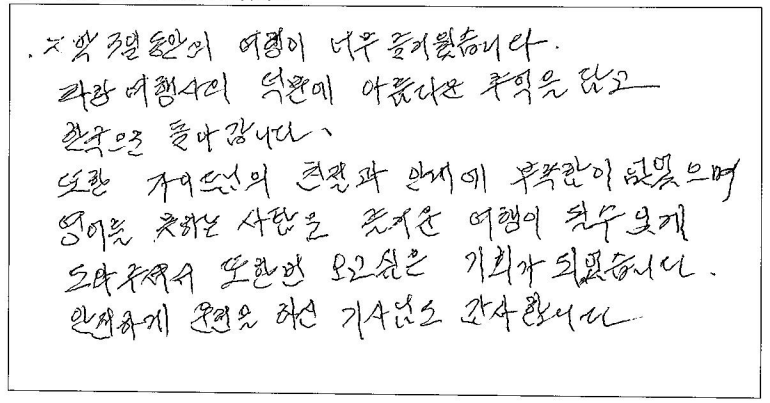 3일 동안의 여행이 너무 즐거웠습니다.
파랑 여행사의 덕분에 아름다운 추억을 담고
한국으로 돌아갑니다.
또한 가이드님의 친절과 안내에 부족함이 없었으며
영어를 못하는 사람을 즐거운 여행이 될수 있게
도와주셔서 또한번 오고싶은 기회가 되었습니다.
안전하게 운전을 하신 기사님도 감사합니다